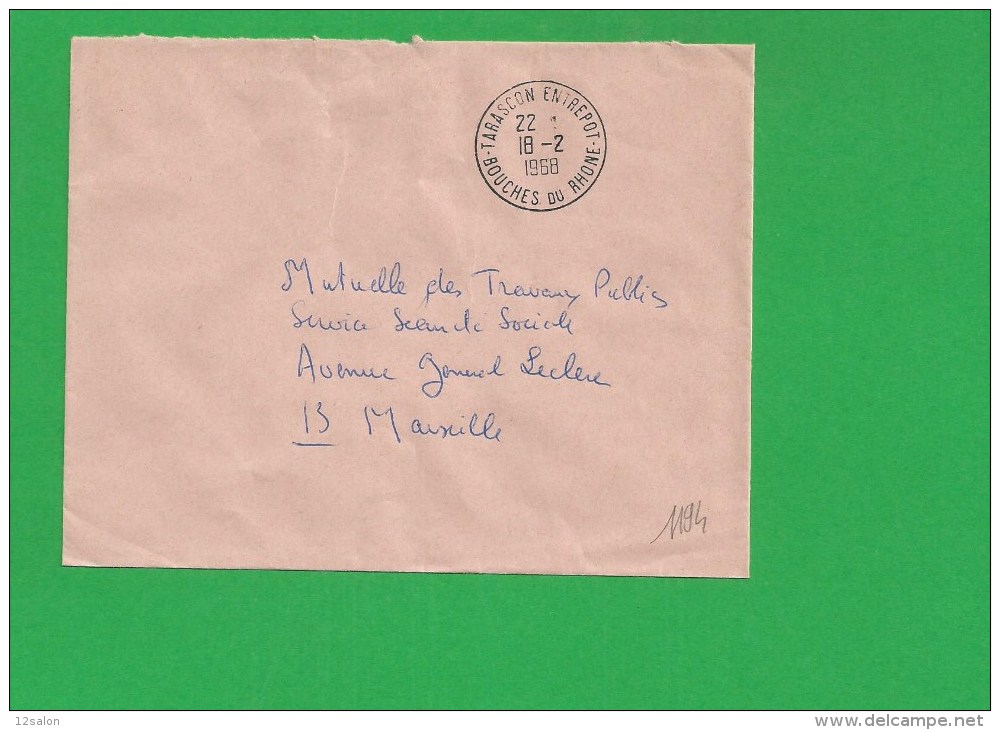 TARASCON ENTREPOT
22
18 -2
1968
BOUCHES DU RHONE
Mutuelle des Travaux Publics
Service Securité Sociale
Avenue General Leclerc
13 Marseille
1194
12salon
www.delcampe.net